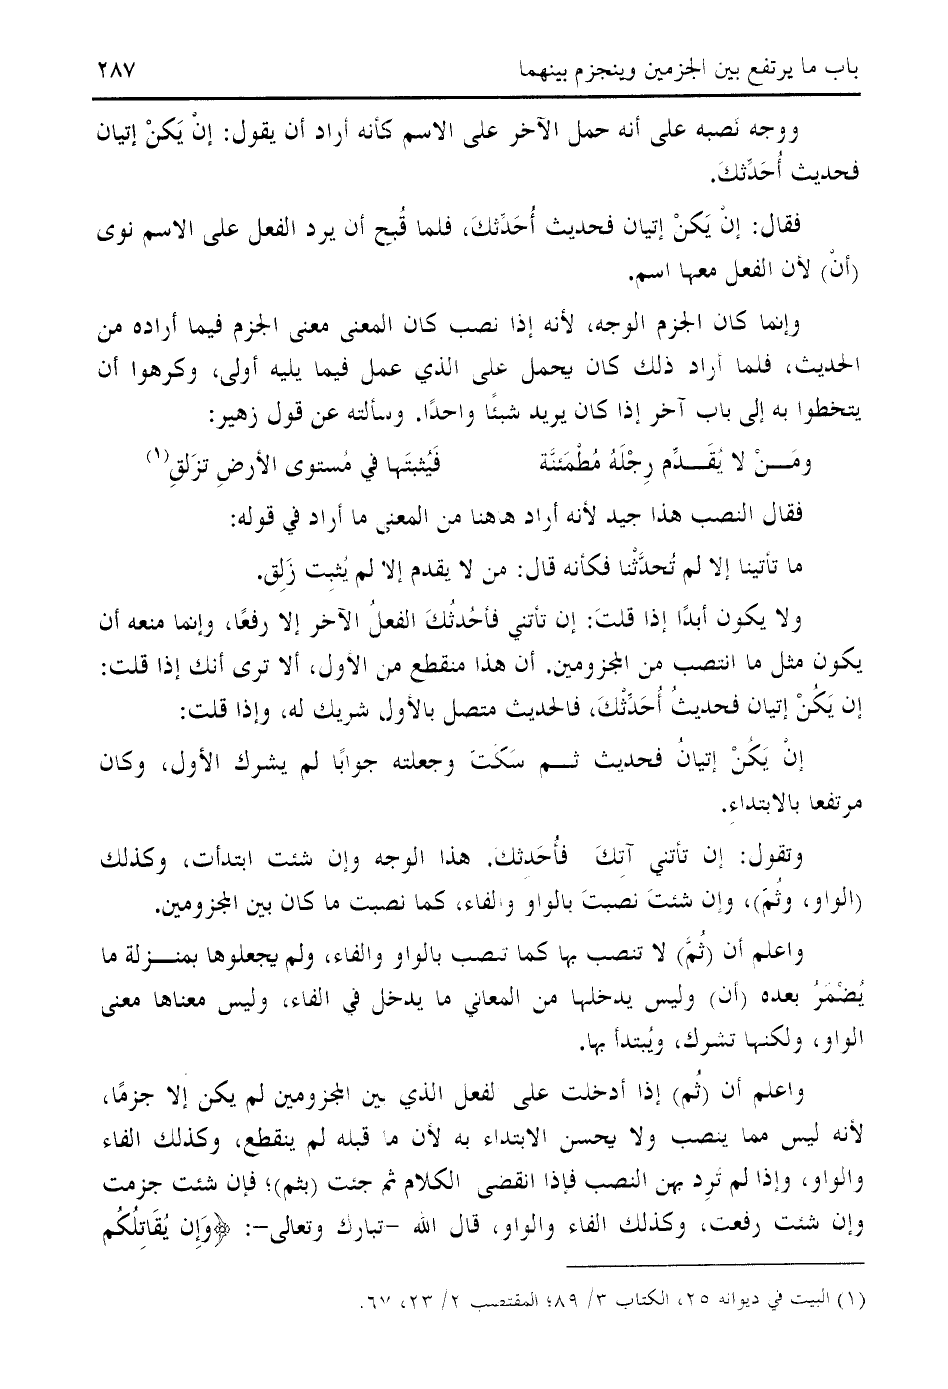 باب ما يرتفع بين الجزمين وينجزم بينهما ٢٨٧
ووجه نَصبه على أنه حمل الآخر على الاسم كأنه أراد أن يقول: إنْ يَكنْ إتيان
فحديث أُحَدِّثكَ.
فقال: إنْ يَكنْ إتيان فحديث أُحَدِّثكَ، فلما قُبح أن يرد الفعل على الاسم نوى
(أنْ) لأن الفعل معها اسم.
وإنما كان الجزم الوجه، لأنه إذا نصب كان المعنى معنى الجزم فيما أراده من
الحديث، فلما أراد ذلك كان يحمل على الذي عمل فيما يليه أولى، وكرهوا أن
يتخطوا به إلى باب آخر إذا كان يريد شيئًا واحدًا. وسألته عن قول زهير:
ومَـــنْ لا يُقَـــدِّم رِجْلَهُ مُطْمَئنَّة فَيُثبتَها في مُستوى الأرضِ تزَلقِ(١)
فقال النصب هذا جيد لأنه أراد هدهنا من المعنى ما أراد في قوله:
ما تأتينا إلا لم تُحدَّثْنا فكأنه قال: من لا يقدم إلا لم يُثبِت زَلِق.
ولا يكون أبدًا إذا قلتَ: إن تأتني فأحْدثُكَ الفعلُ الآخر إلا رفعًا، وإنما منعه أن
يكون مثل ما انتصب من المجزومين. أن هذا منقطع من الأول، ألا ترى أنك إذا قلت:
إن يَكُنْ إتيان فحديثُ أُحَدِّثْكَ، فالحديث متصل بالأول شريك له، وإذا قلت:
إنْ يَكُنْ إتيانُ فحديث ثـــم سَكَتَ وجعلته جوابًا لم يشرك الأول، وكان
مرتفعا بالابتداءِ.
وتقول: إن تأتني آتِكَ فأُحَدثكَ. هذا الوجه وإن شئت ابتدأت، وكذلك
(الواو، وثُمّ)، وإن شئتَ نصبتَ بالواو والفاء، كما نصبت ما كان بين المجزومين.
واعلم أن (ثُمَّ) لا تنصب بها كما تنصب بالواو والفاء، ولم يجعلوها بمنـــزلة ما
يُضْمَرُ بعده (أن) وليس يدخلها من المعاني ما يدخل في الفاء، وليس معناها معنى
الواو، ولكنها تشرك، ويُبتدأ بها.
واعلم أن (ثُم) إذا أدخلت على لفعل الذي بين المجزومين لم يكن إلا جزمًا،
لأنه ليس مما ينصب ولا يحسن الابتداء به لأن ما قبله لم ينقطع، وكذلك الفاء
والواو، وإذا لم تَرِد بهن النصب فإذا انقضى الكلام ثم جئت (بثم)؛ فإن شئت جزمت
وإن شئت رفعت، وكذلك الفاء والواو، قال الله -تبارك وتعالى-: ﴿وَإِن يُقَاتِلُكُم
(١) البيت في ديوانه ٢٥، الكتاب ٣/ ٨٩؛ المقتضب ٢/ ٢٣، ٦٧.